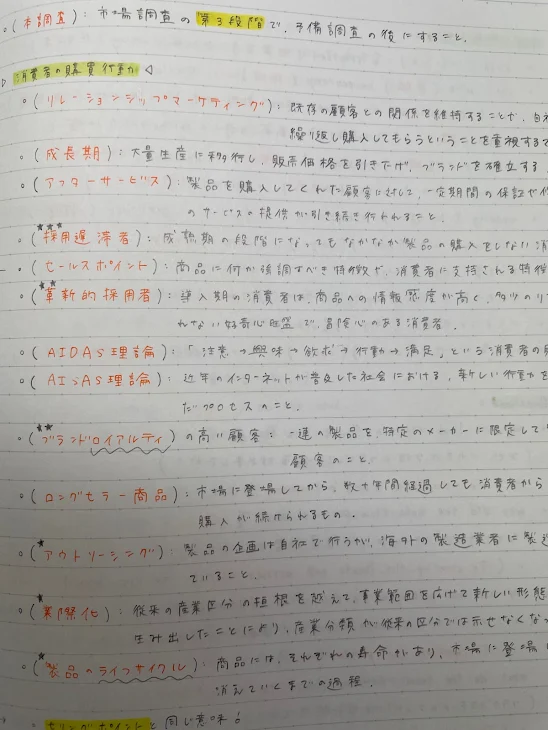 ○(本調査): 市場調査の第3段階で、予備調査の後にすること。
▷ 消費者の購買行動 ◁
○(リレーションシップマーケティング): 既存の顧客との関係を維持することや、自社
繰り返し購入してもらうということを重視する
○(成長期): 大量生産に移行し、販売価格を引き下げ、ブランドを確立する
○(アフターサービス): 製品を購入してくれた顧客に対して、一定期間の保証や
のサービスの提供が引き続き行われること。
★★★
○(採用遅滞者): 成熟期の段階になってもなかなか製品の購入をしない消
○(セールスポイント): 商品に何か強調すべき特徴や、消費者に支持される特徴
★
○(革新的採用者): 導入期の消費者は、商品への情報感度が高く、多少のリ
れない好奇心旺盛で、冒険心のある消費者。
○(AIDAS理論): 「注意→興味→欲求→行動→満足」という消費者の
○(AISAS理論): 近年のインターネットが普及した社会における、新しい行動を
だプロセスのこと。
★★
○(ブランドロイアルティ)の高い顧客: 一連の製品を、特定のメーカーに限定して
顧客のこと。
○(ロングセラー商品): 市場に登場してから、数十年間経過しても、消費者から
購入が続けられるもの。
★
○(アウトソーシング): 製品の企画は自社で行うが、海外の製造業者に製造
ていること。
★
○(業際化): 従来の産業区分の垣根を越えて、事業範囲を広げて新しい形態
生み出したことにより、産業分類が従来の区分では示せなくなっ
★
○(製品のライフサイクル): 商品には、それぞれの寿命があり、市場に登場
消えていくまでの過程。
セリングポイントと同じ意味!